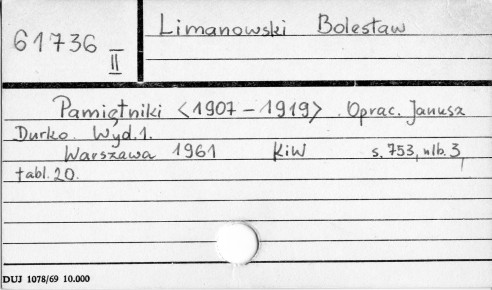 61736
II
Limanowski Bolesław
Pamiętniki <1907-1919>. Oprac. Janusz
Durko. Wyd. 1.
Warszawa 1961 KiW s. 753, nlb. 3,
tabl. 20.
DUJ 1078/69 10.000